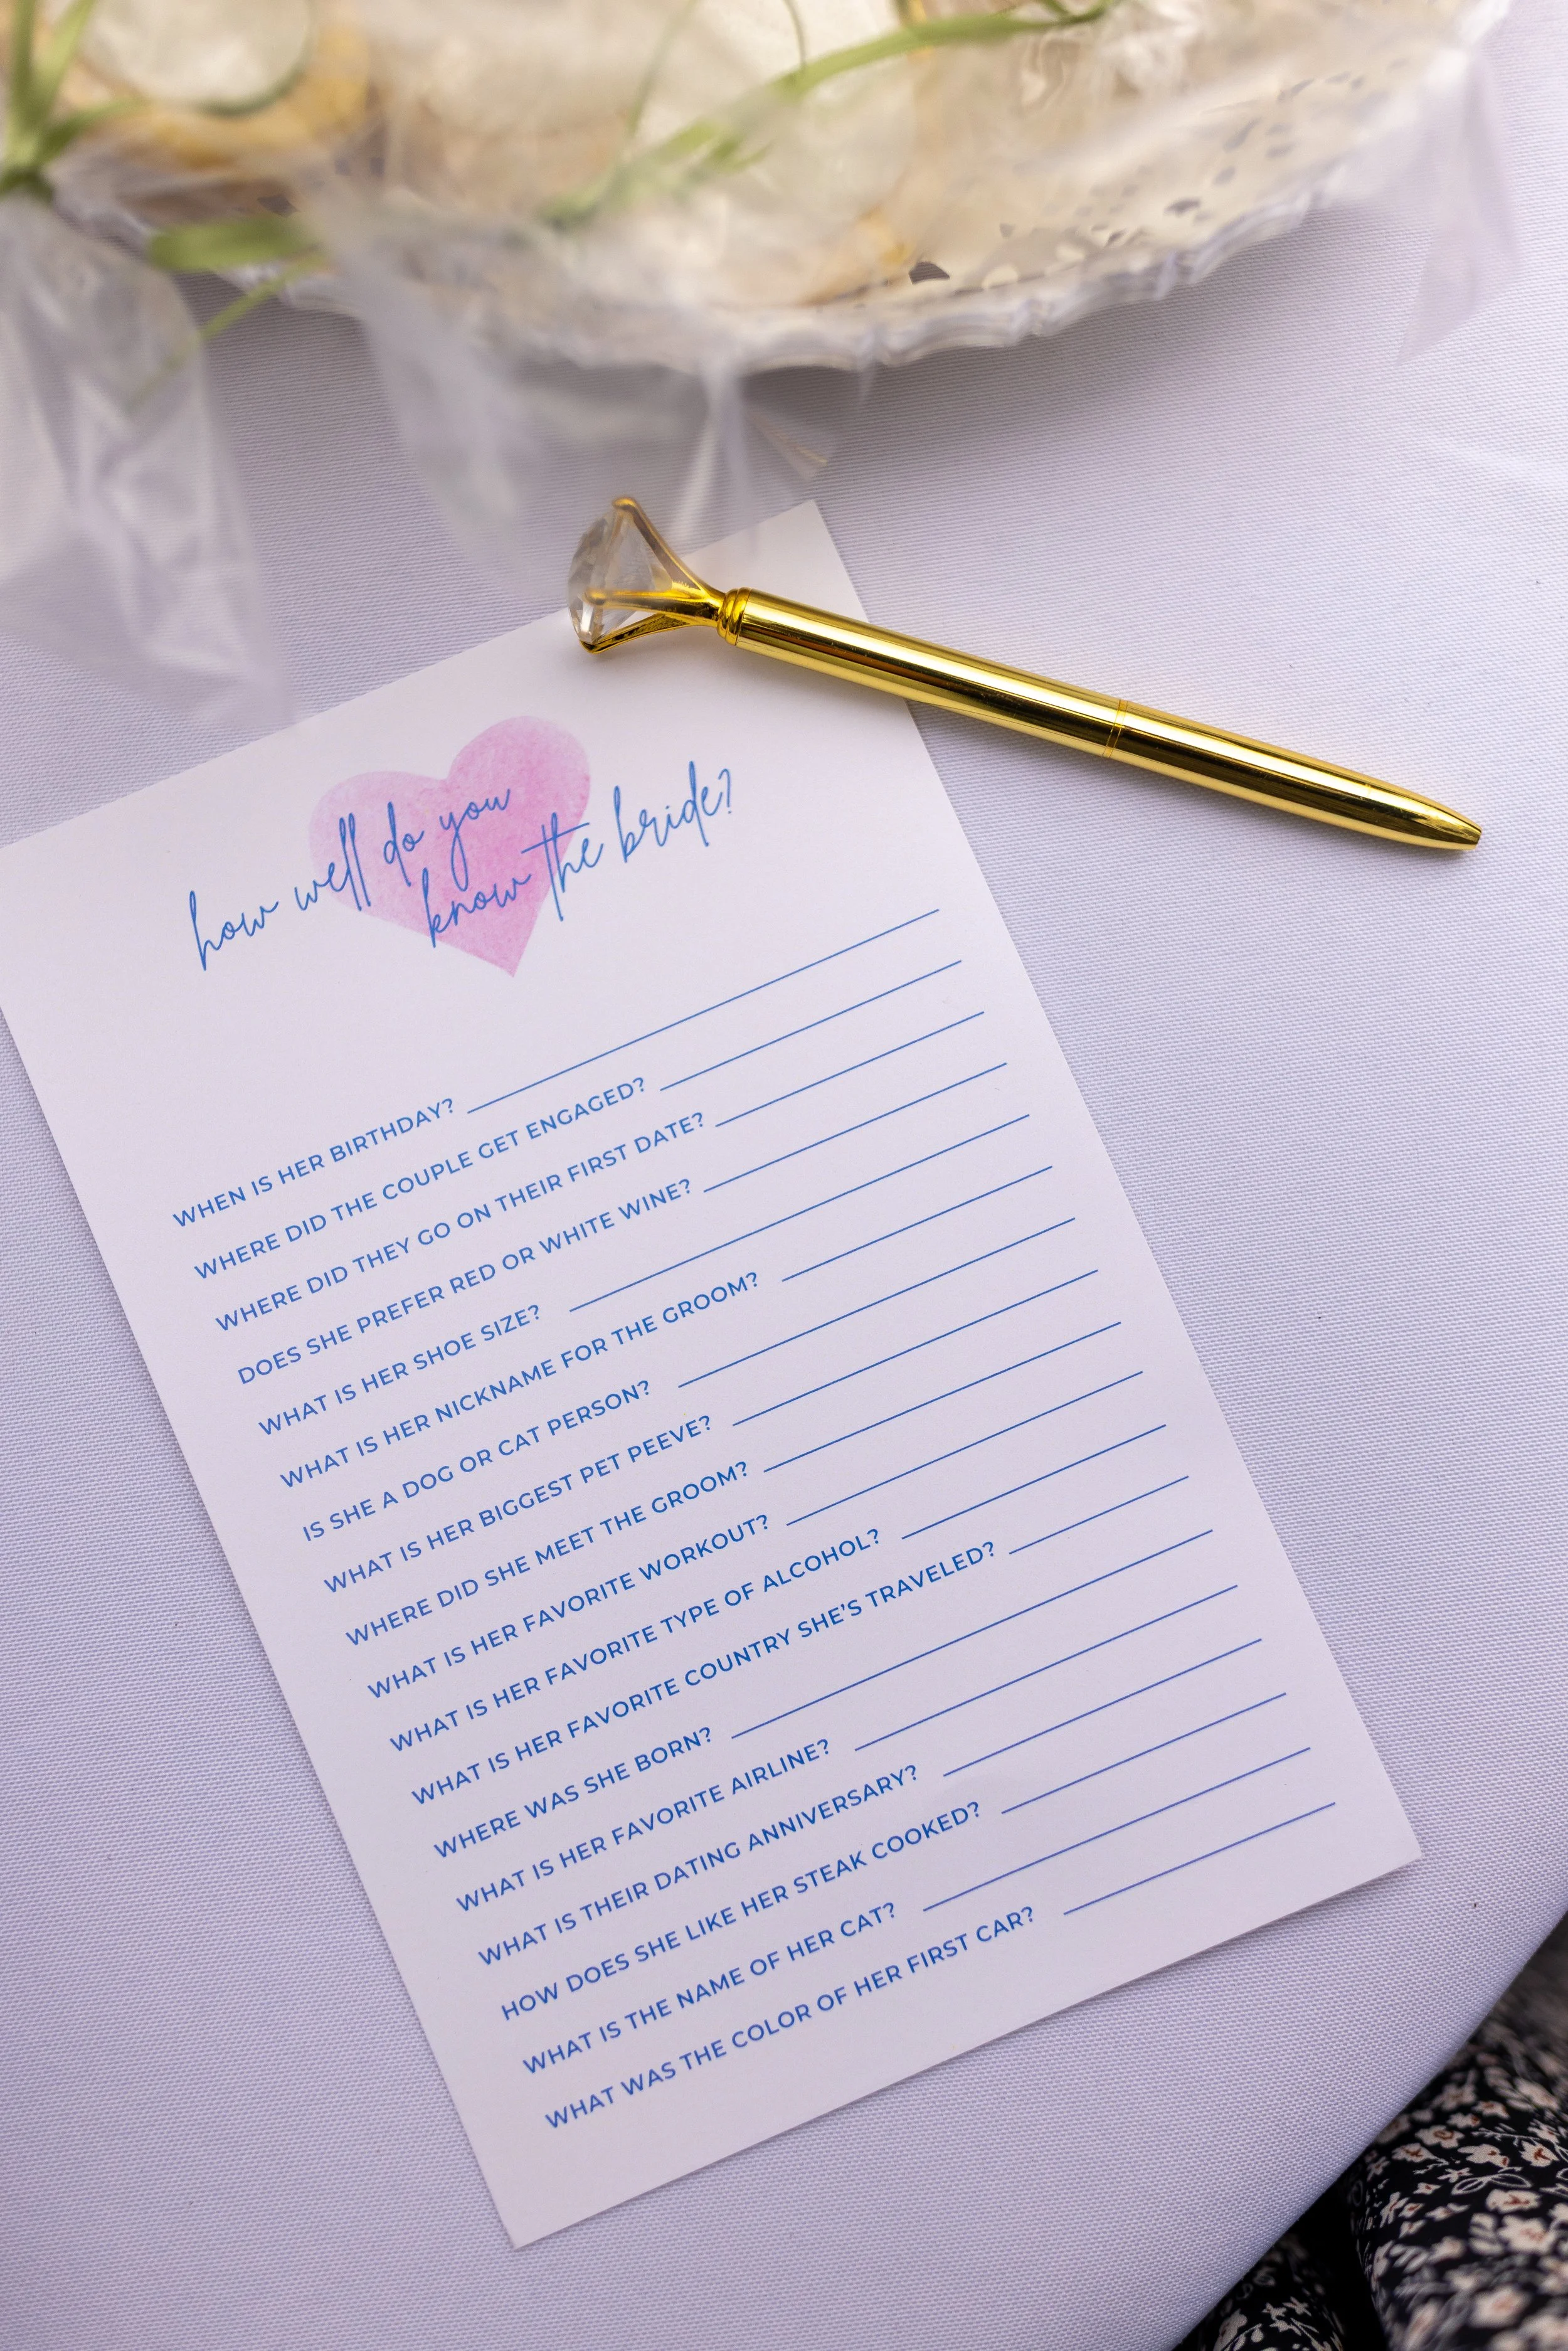 how well do you
know the bride?
WHEN IS HER BIRTHDAY?
WHERE DID THE COUPLE GET ENGAGED?
WHERE DID THEY GO ON THEIR FIRST DATE?
DOES SHE PREFER RED OR WHITE WINE?
WHAT IS HER SHOE SIZE?
WHAT IS HER NICKNAME FOR THE GROOM?
IS SHE A DOG OR CAT PERSON?
WHAT IS HER BIGGEST PET PEEVE?
WHERE DID SHE MEET THE GROOM?
WHAT IS HER FAVORITE WORKOUT?
WHAT IS HER FAVORITE TYPE OF ALCOHOL?
WHAT IS HER FAVORITE COUNTRY SHE'S TRAVELED?
WHERE WAS SHE BORN?
WHAT IS HER FAVORITE AIRLINE?
WHAT IS THEIR DATING ANNIVERSARY?
HOW DOES SHE LIKE HER STEAK COOKED?
WHAT IS THE NAME OF HER CAT?
WHAT WAS THE COLOR OF HER FIRST CAR?